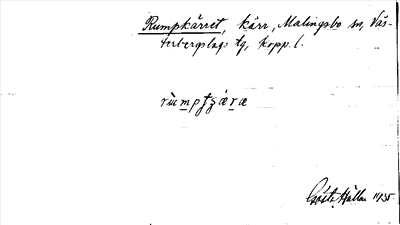 Rumpkärret, kärr, Malingsbo sn, Väs-
terbergslags tg, Kopp. l.
Gösta Hallén 1935.